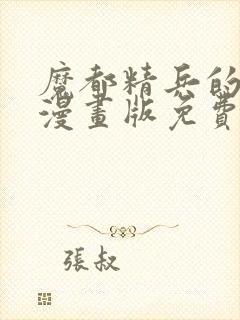 魔都精兵的
漫畫版免費
張叔